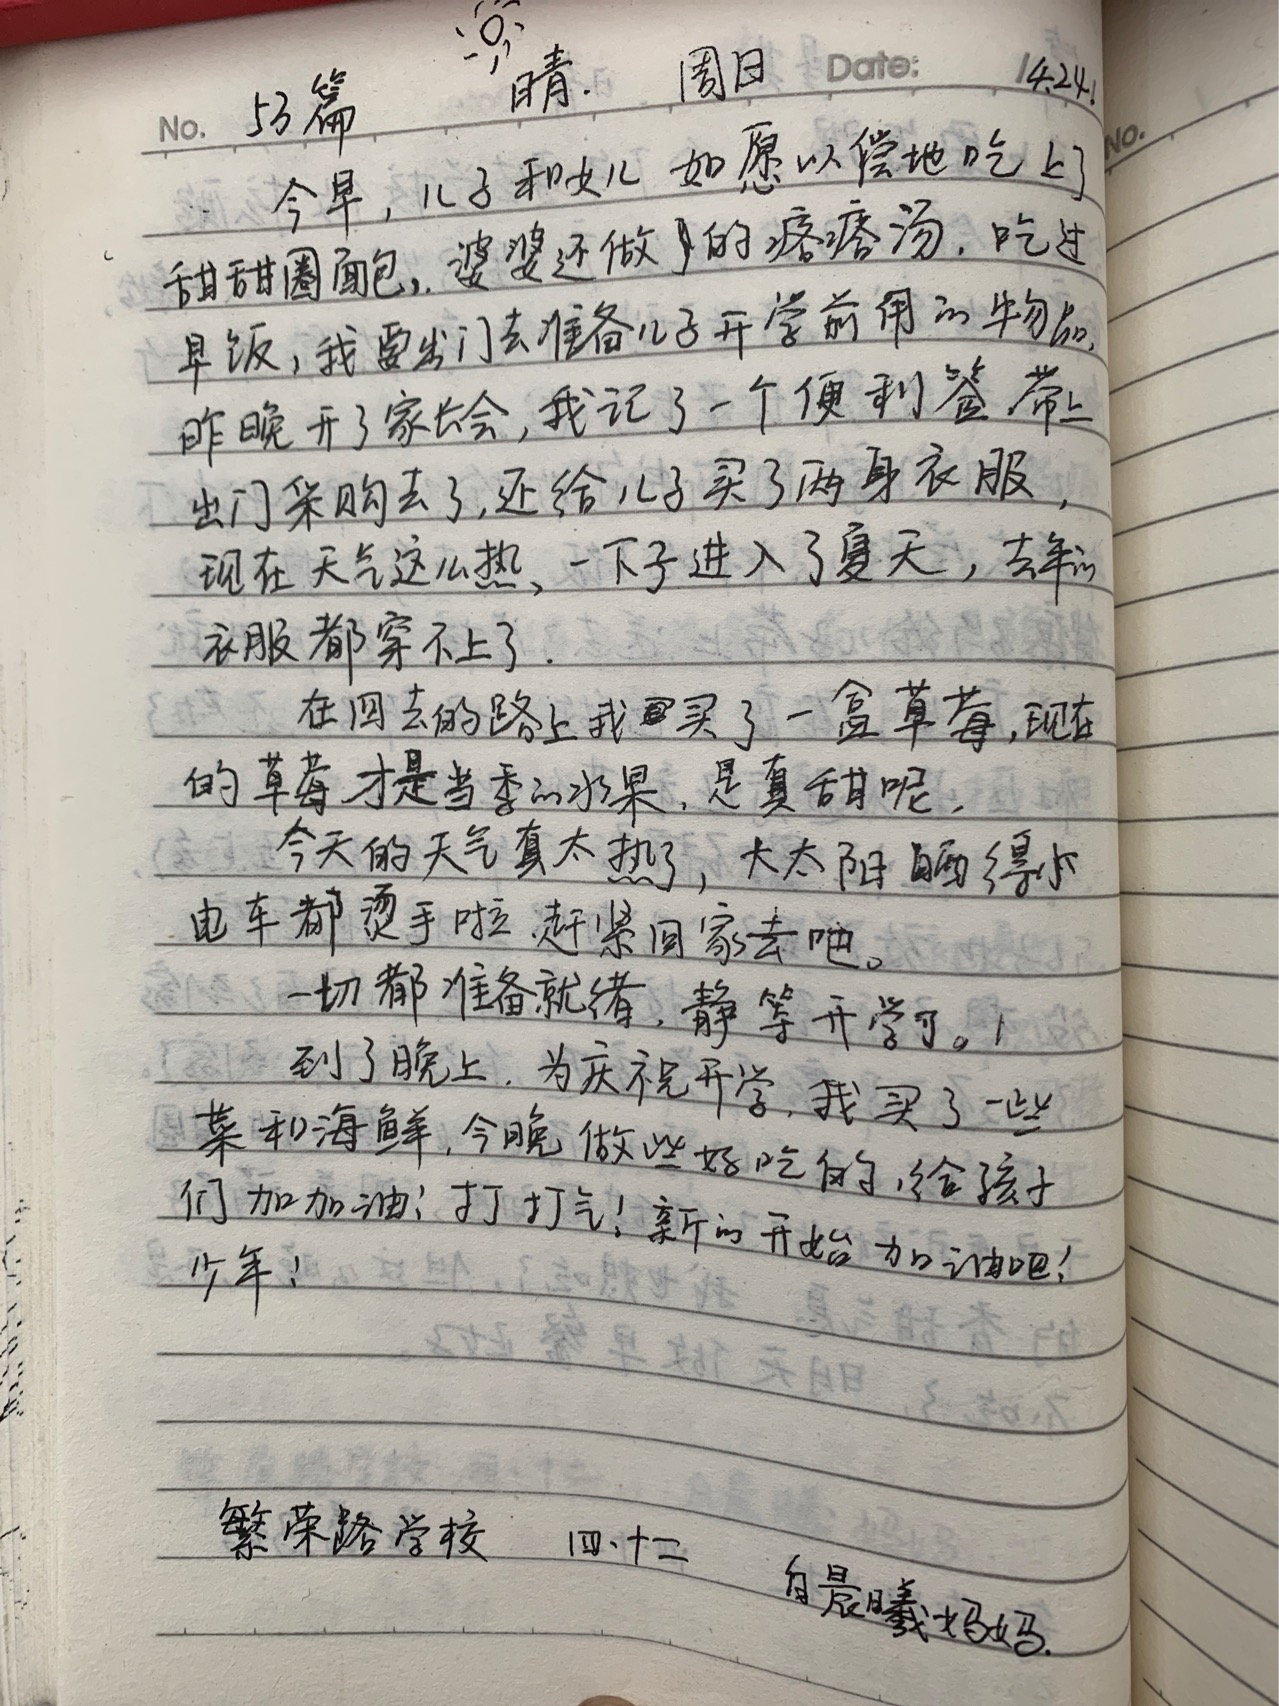 No. 53篇 晴. 周日 Date: 4.24.
今早，儿子和女儿如愿以偿地吃上了
甜甜圈面包，婆婆还做的疙瘩汤，吃过
早饭，我要出门去准备儿子开学前用的物品，
昨晚开了家长会，我记了一个便利签带上
出门采购去了，还给儿子买了两身衣服，
现在天气这么热，一下子进入了夏天，去年的
衣服都穿不上了.
在回去的路上我买了一盒草莓，现在
的草莓才是当季的水果，是真甜呢，
今天的天气真太热了，大太阳晒得小
电车都烫手啦，赶紧回家去吧。
一切都准备就绪，静等开学了。
到了晚上，为庆祝开学，我买了一些
菜和海鲜，今晚做些好吃的，给孩子
们加加油！打打气！新的开始加油吧！
少年！
繁荣路学校 四.十二
白晨曦妈妈.
No.